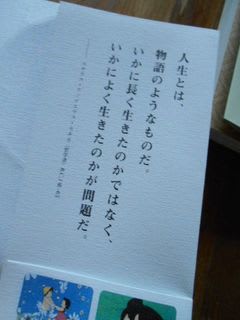 人生とは、
物語のようなものだ。
いかに長く生きたのかではなく、
いかによく生きたのかが問題だ。